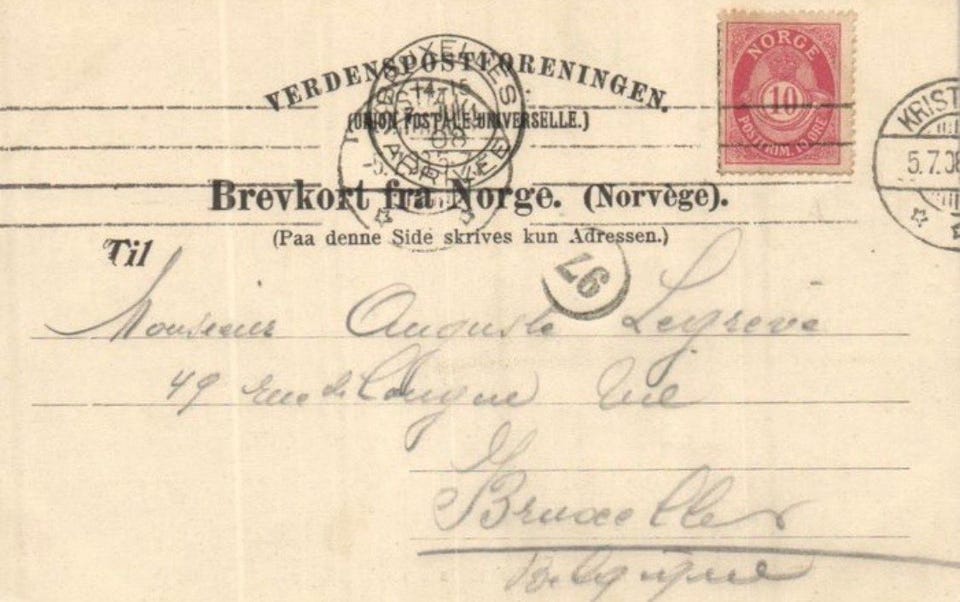 VERDENSPOSTFORENINGEN.
(UNION POSTALE UNIVERSELLE.)
BRUXELLES
14-15
08
ARRIVEE
NORGE
10
POSTFRIM. 10 ØRE
KRIST
5.7.08
Brevkort fra Norge. (Norvège).
(Paa denne Side skrives kun Adressen.)
Til
97
Monsieur Auguste Legrève
49 rue de
Bruxelles
Belgique